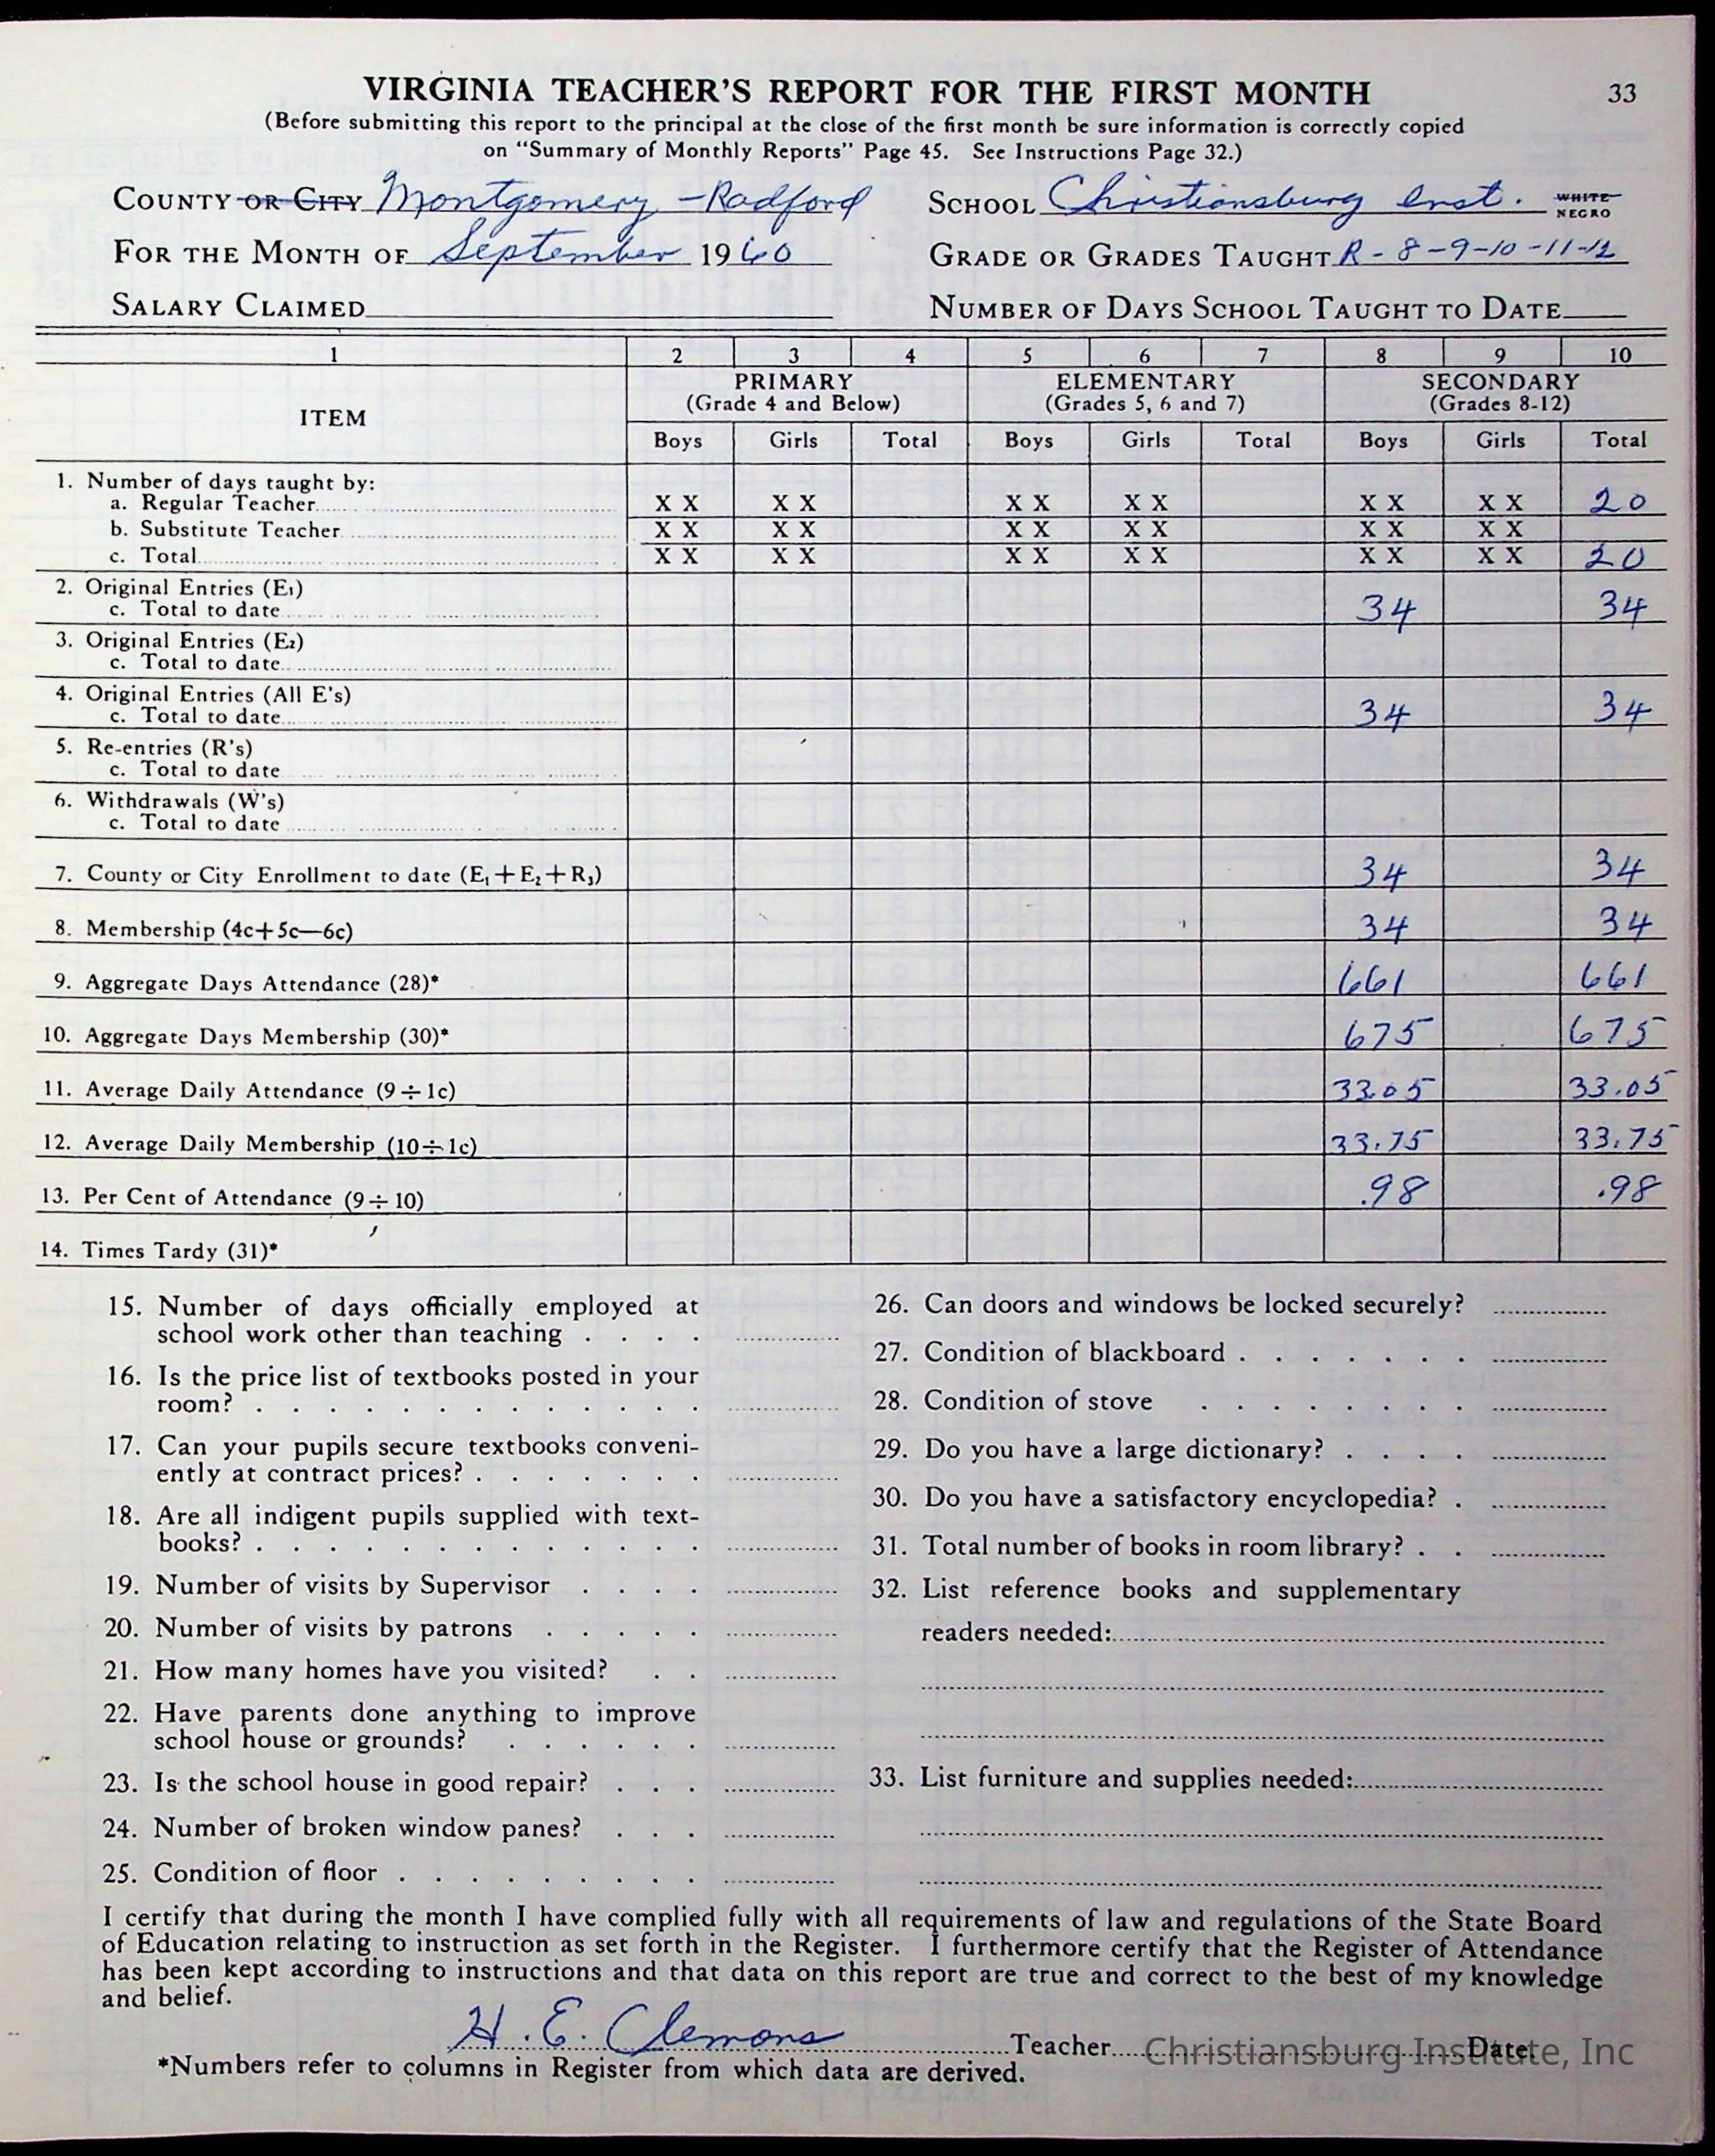 VIRGINIA TEACHER'S REPORT FOR THE FIRST MONTH 33
(Before submitting this report to the principal at the close of the first month be sure information is correctly copied
on "Summary of Monthly Reports" Page 45. See Instructions Page 32.)
COUNTY OR CITY Montgomery - Radford SCHOOL Christiansburg Inst. WHITE
NEGRO
FOR THE MONTH OF September 1960 GRADE OR GRADES TAUGHT R-8-9-10-11-12
SALARY CLAIMED NUMBER OF DAYS SCHOOL TAUGHT TO DATE
1 2 3 4 5 6 7 8 9 10
ITEM PRIMARY ELEMENTARY SECONDARY
(Grade 4 and Below) (Grades 5, 6 and 7) (Grades 8-12)
Boys Girls Total Boys Girls Total Boys Girls Total
1. Number of days taught by:
a. Regular Teacher X X X X X X X X X X X X 20
b. Substitute Teacher X X X X X X X X X X X X
c. Total X X X X X X X X X X X X 20
2. Original Entries (E1)
c. Total to date 34 34
3. Original Entries (E2)
c. Total to date
4. Original Entries (All E's)
c. Total to date 34 34
5. Re-entries (R's)
c. Total to date
6. Withdrawals (W's)
c. Total to date
7. County or City Enrollment to date (E1+E2+R3) 34 34
8. Membership (4c+5c—6c) 34 34
9. Aggregate Days Attendance (28)* 661 661
10. Aggregate Days Membership (30)* 675 675
11. Average Daily Attendance (9÷1c) 33.05 33.05
12. Average Daily Membership (10÷1c) 33.75 33.75
13. Per Cent of Attendance (9÷10) .98 .98
14. Times Tardy (31)*
15. Number of days officially employed at
school work other than teaching
16. Is the price list of textbooks posted in your
room?
17. Can your pupils secure textbooks conveni-
ently at contract prices?
18. Are all indigent pupils supplied with text-
books?
19. Number of visits by Supervisor
20. Number of visits by patrons
21. How many homes have you visited?
22. Have parents done anything to improve
school house or grounds?
23. Is the school house in good repair?
24. Number of broken window panes?
25. Condition of floor
26. Can doors and windows be locked securely?
27. Condition of blackboard
28. Condition of stove
29. Do you have a large dictionary?
30. Do you have a satisfactory encyclopedia?
31. Total number of books in room library?
32. List reference books and supplementary
readers needed:
33. List furniture and supplies needed:
I certify that during the month I have complied fully with all requirements of law and regulations of the State Board
of Education relating to instruction as set forth in the Register. I furthermore certify that the Register of Attendance
has been kept according to instructions and that data on this report are true and correct to the best of my knowledge
and belief.
H. E. Clemons Teacher Date
Christiansburg Institute, Inc
*Numbers refer to columns in Register from which data are derived.